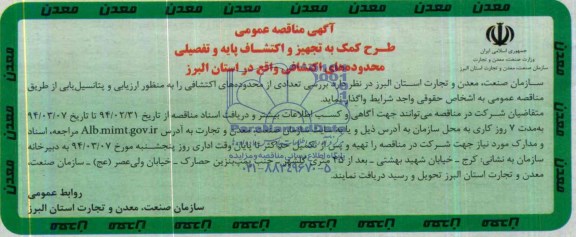 معدن معدن معدن معدن معدن معدن معدن
آگهی مناقصه عمومی
طرح کمک به تجهیز و اکتشاف پایه و تفصیلی
محدوده‌های اکتشافی واقع در استان البرز
جمهوری اسلامی ایران
وزارت صنعت، معدن و تجارت
سازمان صنعت، معدن و تجارت استان البرز
سازمان صنعت، معدن و تجارت استان البرز در نظر دارد بررسی تعدادی از محدوده‌های اکتشافی را به منظور ارزیابی و پتانسیل‌یابی از طریق
مناقصه عمومی به اشخاص حقوقی واجد شرایط واگذار نماید.
متقاضیان شرکت در مناقصه می‌توانند جهت آگاهی و کسب اطلاعات بیشتر و دریافت اسناد مناقصه از تاریخ ۹۴/۰۲/۳۱ تا تاریخ ۹۴/۰۳/۰۷
به‌مدت ۷ روز کاری به محل سازمان به آدرس ذیل و یا معدن و تجارت به آدرس Alb.mimt.gov.ir مراجعه، اسناد
و مدارک مورد نیاز جهت شرکت در مناقصه را تهیه و پس از تکمیل حداکثر تا پایان وقت اداری روز پنجشنبه مورخ ۹۴/۰۳/۰۷ به دبیرخانه
سازمان به نشانی: کرج ـ خیابان شهید بهشتی ـ بعد از ۴۵ متری گلشهر ـ جنب پمپ‌بنزین حصارک ـ خیابان ولی‌عصر (عج) ـ سازمان صنعت،
معدن و تجارت استان البرز تحویل و رسید دریافت نمایند.
پایگاه اطلاع‌رسانی مناقصه و مزایده
۰۲۱-۸۸۳۴۹۶۷۰-۵
روابط عمومی
سازمان صنعت، معدن و تجارت استان البرز
معدن معدن معدن معدن معدن معدن معدن